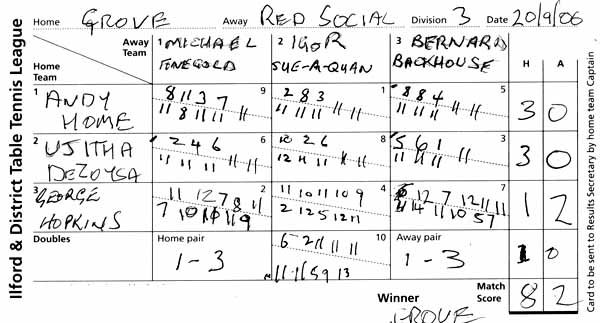 Home GROVE Away RED SOCIAL Division 3 Date 20/9/06
Ilford & District Table Tennis League
Away Team
Home Team
1 MICHAEL FINEGOLD
2 IGOR SUE-A-QUAN
3 BERNARD BACKHOUSE
H A
1 ANDY HOME
8 11 3 7 9
11 8 11 11
2 8 3 1
11 11 11
8 8 4 5
11 11 11
3 0
2 UJITHA DEZOYSA
2 4 6 6
11 11 11
10 2 6 8
12 11 11
5 6 1 3
11 11 11
3 0
3 GEORGE HOPKINS
11 12 7 8 11 2
7 10 11 9
11 10 11 10 9 4
2 12 5 12 11
12 7 12 11 11 7
14 11 10 5 7
1 2
Doubles
Home pair
1-3
6 2 11 11 11 10
11 9 13
Away pair
1-3
1 0
Winner GROVE
Match Score 8 2
Card to be sent to Results Secretary by home team Captain